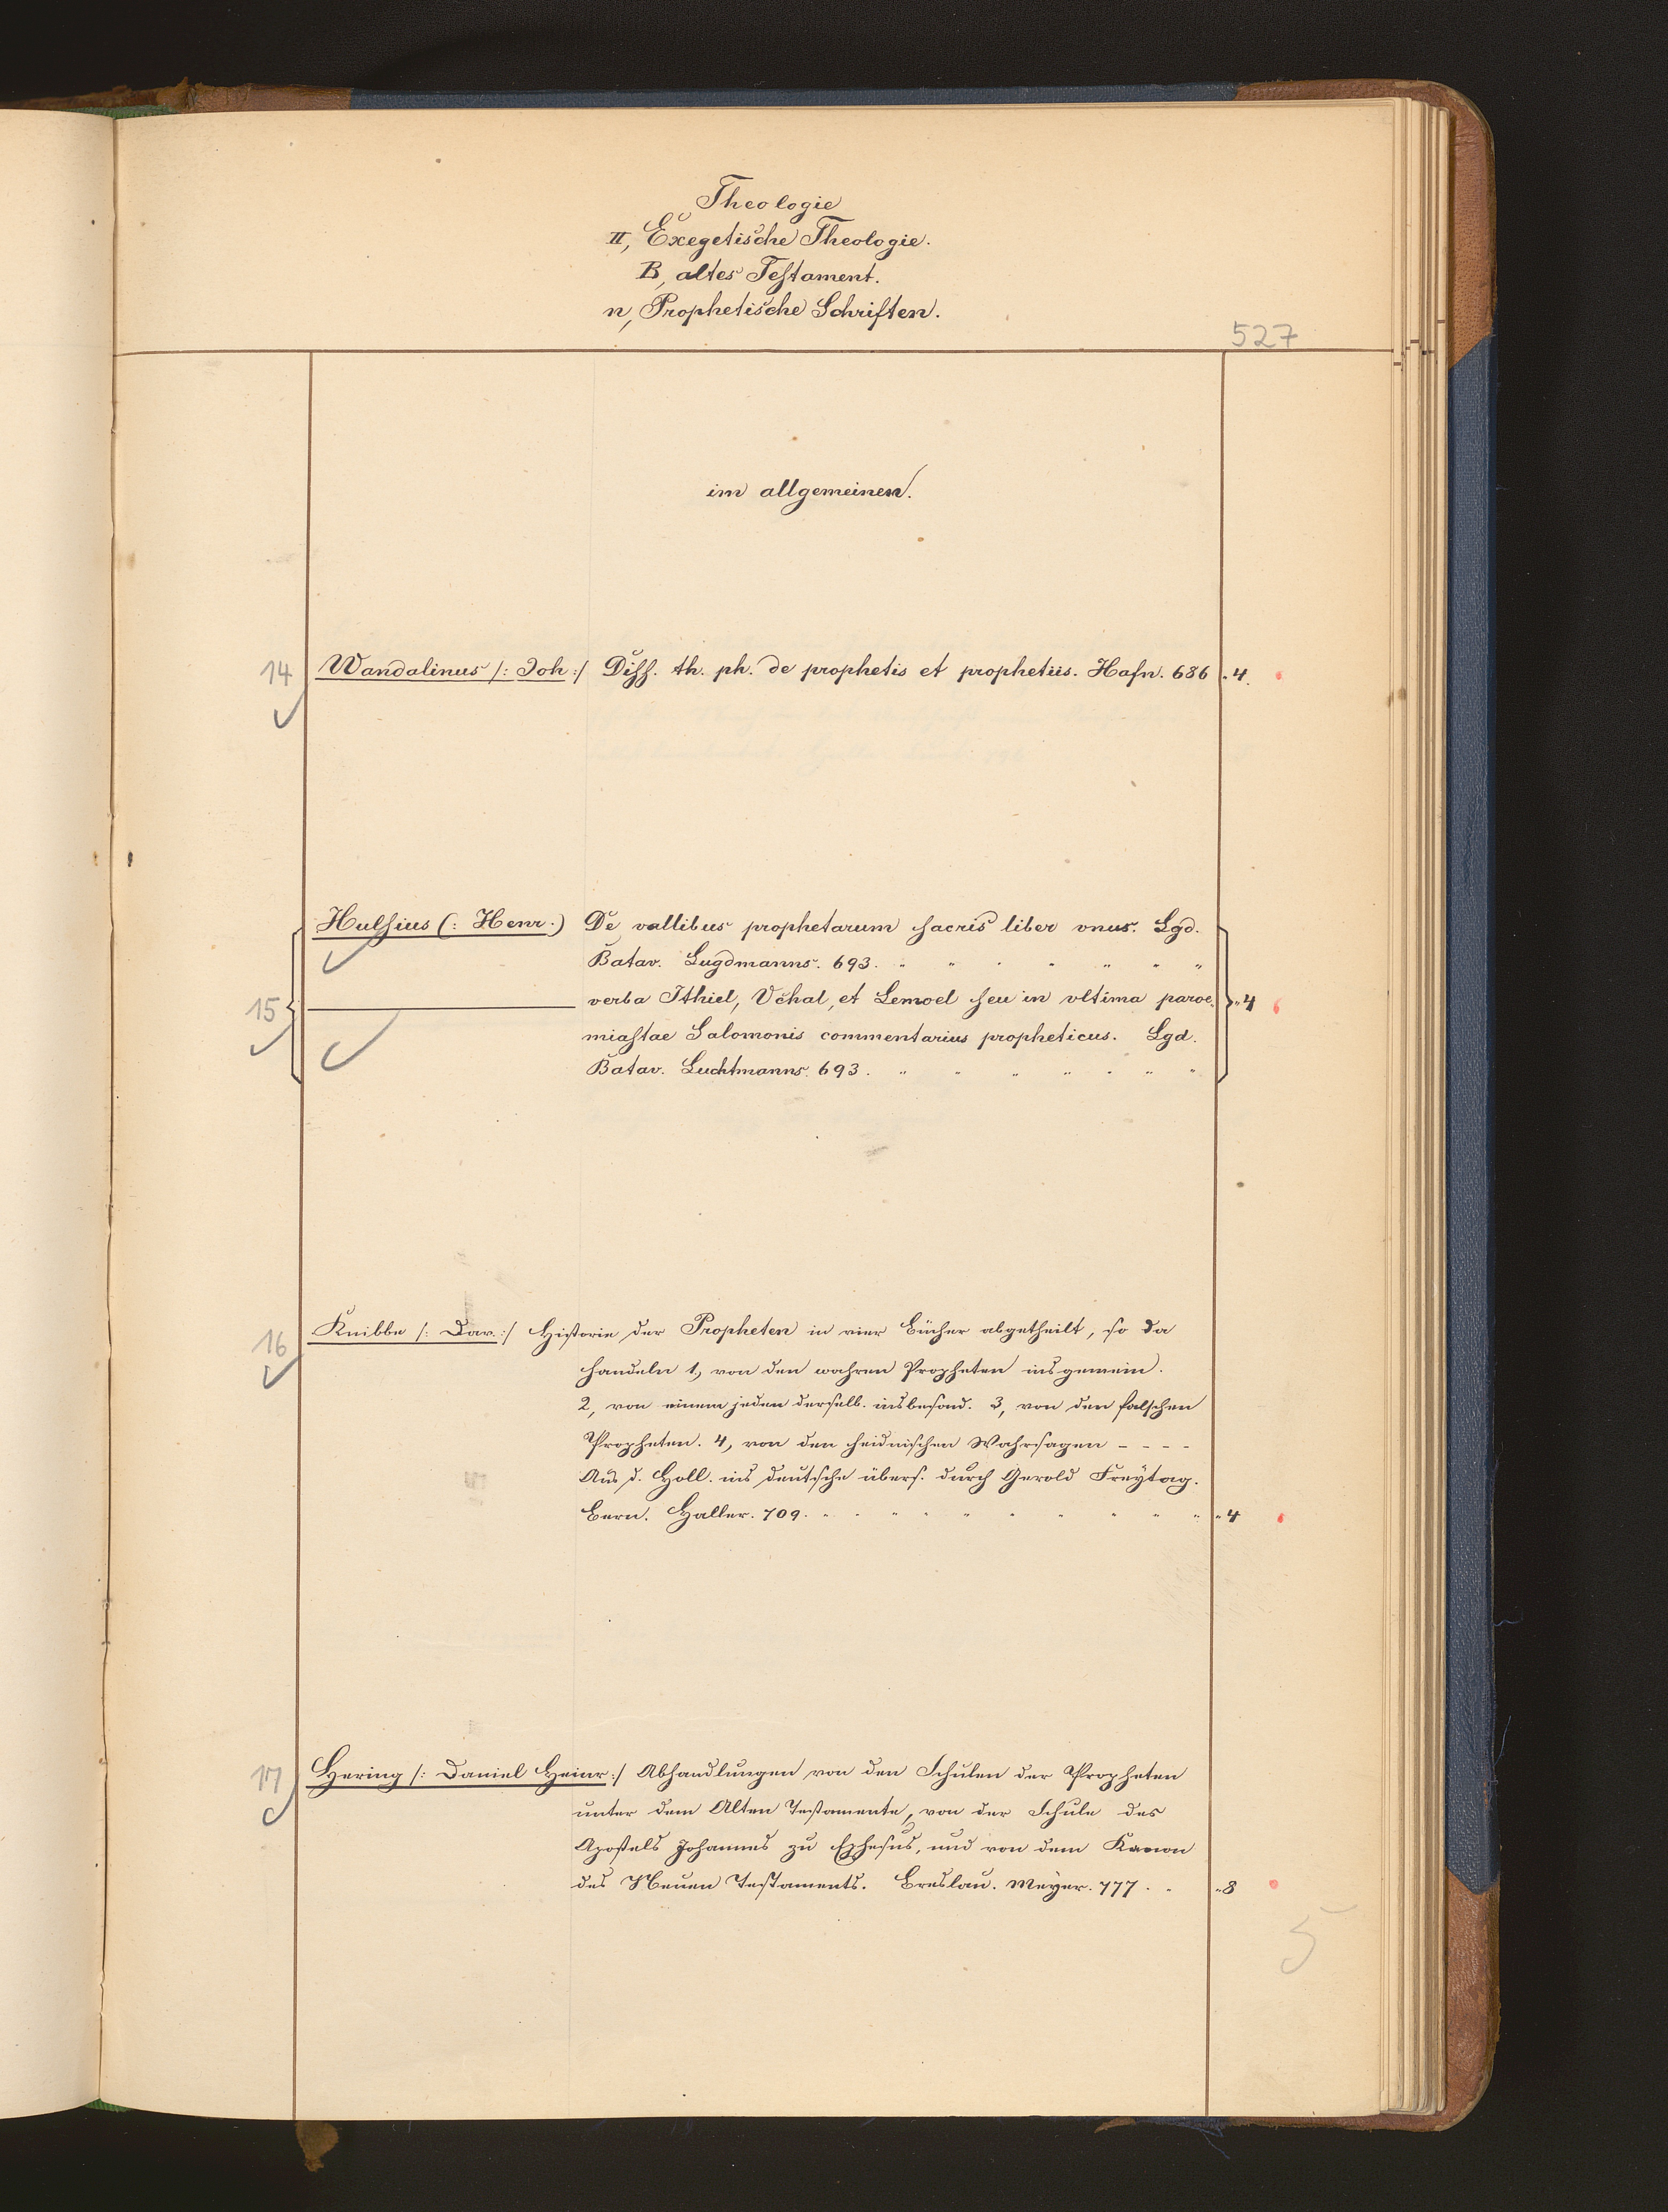 Theologie
II, Exegetische Theologie.
B, altes Testament.
n, Prophetische Schriften.
527
im allgemeinen.
14 Wandalinus /: Joh :/ Diss. th. ph. de prophetis et prophetiis. Hafn. 686 „ 4.
Hulsius (: Henr.) De vallibus prophetarum sacris liber vnus. Lgd.
Batav. Lugdmanns. 693. „ „ „ „ „ „ „
15 ——— verba Ithiel, Vchal, et Lemoel seu in vltima paroe- „ 4
miastae Salomonis commentarius propheticus. Lgd.
Batav. Luchtmanns. 693. „ „ „ „ „ „ „
16 Knibbe /: Dav. :/ Historie der Propheten in vier Bücher abgetheilt, so da
handeln 1, von den wahren Propheten insgemein.
2, von einem jeden derselb. insbesond. 3, von den falschen
Propheten. 4, von den heidnischen Wahrsagen - - - -
Aus d. Holl. ins deutsche übers. durch Gerold Freÿtag.
Bern. Haller. 709. „ „ „ „ „ „ „ „ „ „ „ 4
17 Hering /: Daniel Heinr :/ Abhandlungen von den Schulen der Propheten
unter dem Alten Testamente, von der Schule des
Apostels Johannes zu Ephesus, und von dem Kanon
des Neuen Testaments. Breslau. Meÿer. 777. „ „ 8
5